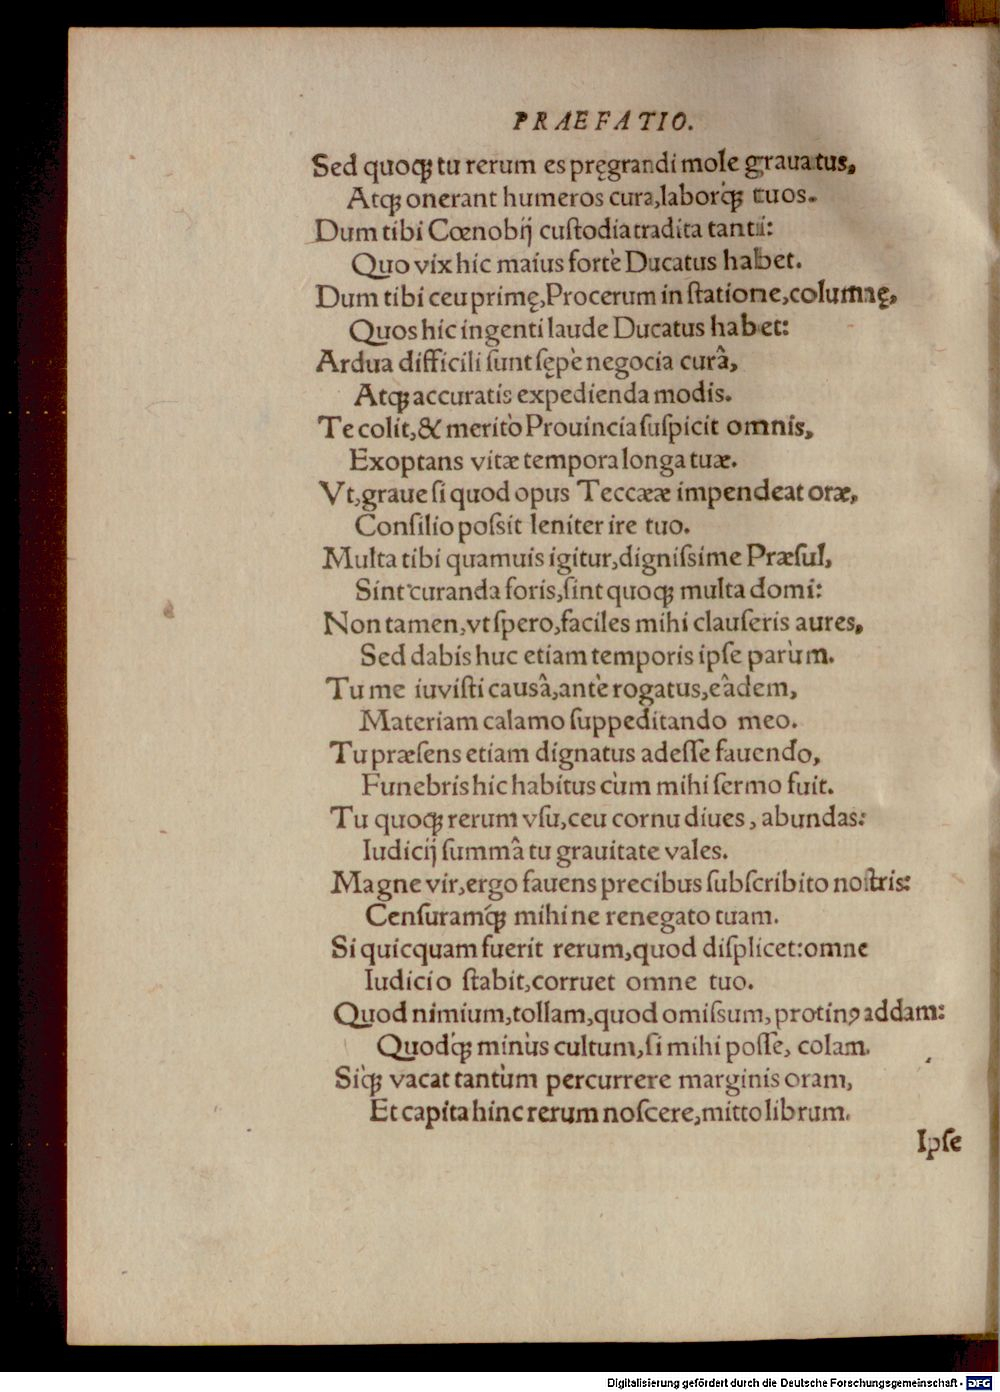 PRAEFATIO.
Sed quoqꝫ tu rerum es pręgrandi mole grauatus,
Atqꝫ onerant humeros cura, laborq́ꝫ tuos.
Dum tibi Cœnobij cuſtodia tradita tanti:
Quo vix hic maius fortè Ducatus habet.
Dum tibi ceu primę, Procerum in ſtatione, columnę,
Quos hic ingenti laude Ducatus habet:
Ardua difficili ſunt ſępè negocia curâ,
Atqꝫ accuratis expedienda modis.
Te colit, & meritò Prouincia ſuſpicit omnis,
Exoptans vitæ tempora longa tuæ.
Vt, graue ſi quod opus Teccææ impendeat oræ,
Conſilio poſsit leniter ire tuo.
Multa tibi quamuis igitur, digniſsime Præſul,
Sint curanda foris, ſint quoqꝫ multa domi:
Non tamen, vt ſpero, faciles mihi clauſeris aures,
Sed dabis huc etiam temporis ipſe parùm.
Tu me iuviſti causâ, antè rogatus, eâdem,
Materiam calamo ſuppeditando meo.
Tu præſens etiam dignatus adeſſe fauendo,
Funebris hic habitus cùm mihi ſermo fuit.
Tu quoqꝫ rerum vſu, ceu cornu diues, abundas:
Iudicij ſummâ tu grauitate vales.
Magne vir, ergo fauens precibus ſubſcribito noſtris:
Cenſuramq́ꝫ mihi ne renegato tuam.
Si quicquam fuerit rerum, quod diſplicet: omne
Iudicio ſtabit, corruet omne tuo.
Quod nimium, tollam, quod omiſsum, protinꝰ addam:
Quodq́ꝫ minùs cultum, ſi mihi poſſe, colam.
Siq́ꝫ vacat tantùm percurrere marginis oram,
Et capita hinc rerum noſcere, mitto librum.
Ipſe
Digitalisierung gefördert durch die Deutsche Forschungsgemeinschaft - DFG